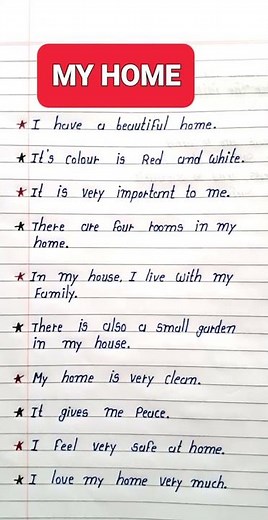 MY HOME
* I have a beautiful home.
* It's colour is Red and white.
* It is very important to me.
* There are four rooms in my
home.
* In my house, I live with my
Family.
* There is also a small garden
in my house.
* My home is very clean.
* It gives me Peace.
* I feel very safe at home.
* I love my home very much.